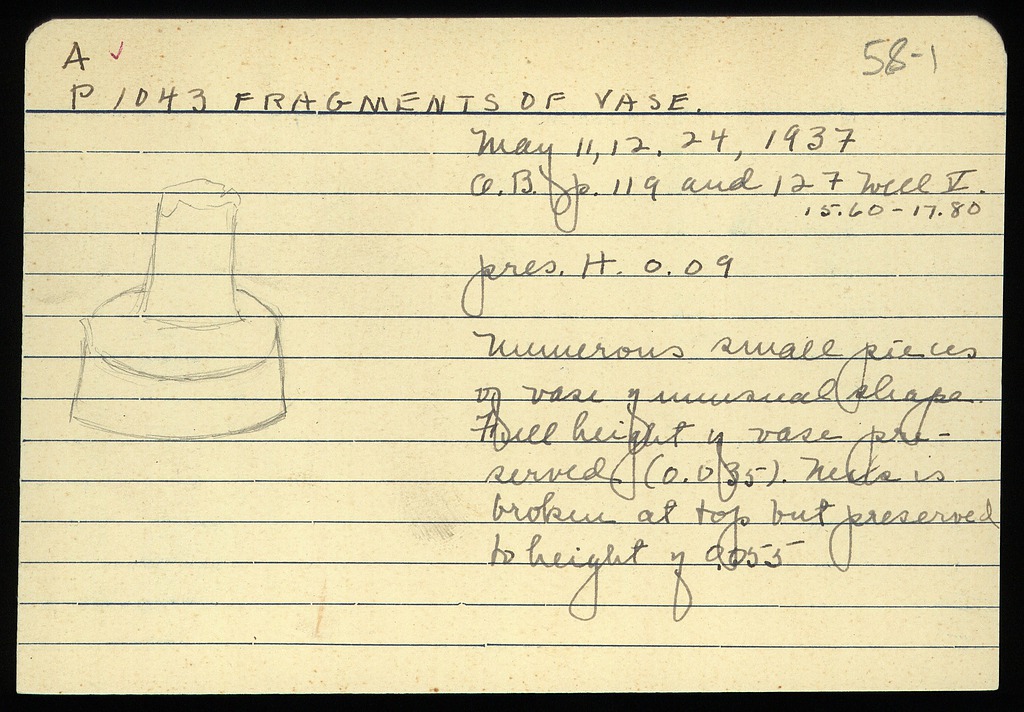 A ✓
58-1
P 1043 FRAGMENTS OF VASE.
May 11, 12, 24, 1937
p. 119 and 127 Well V.
15.60-17.80
pres. H. 0.09
Numerous small pieces
of vase of unusual shape.
Full height of vase pre-
served (0.035). Neck is
broken at top but preserved
to height of 0.055